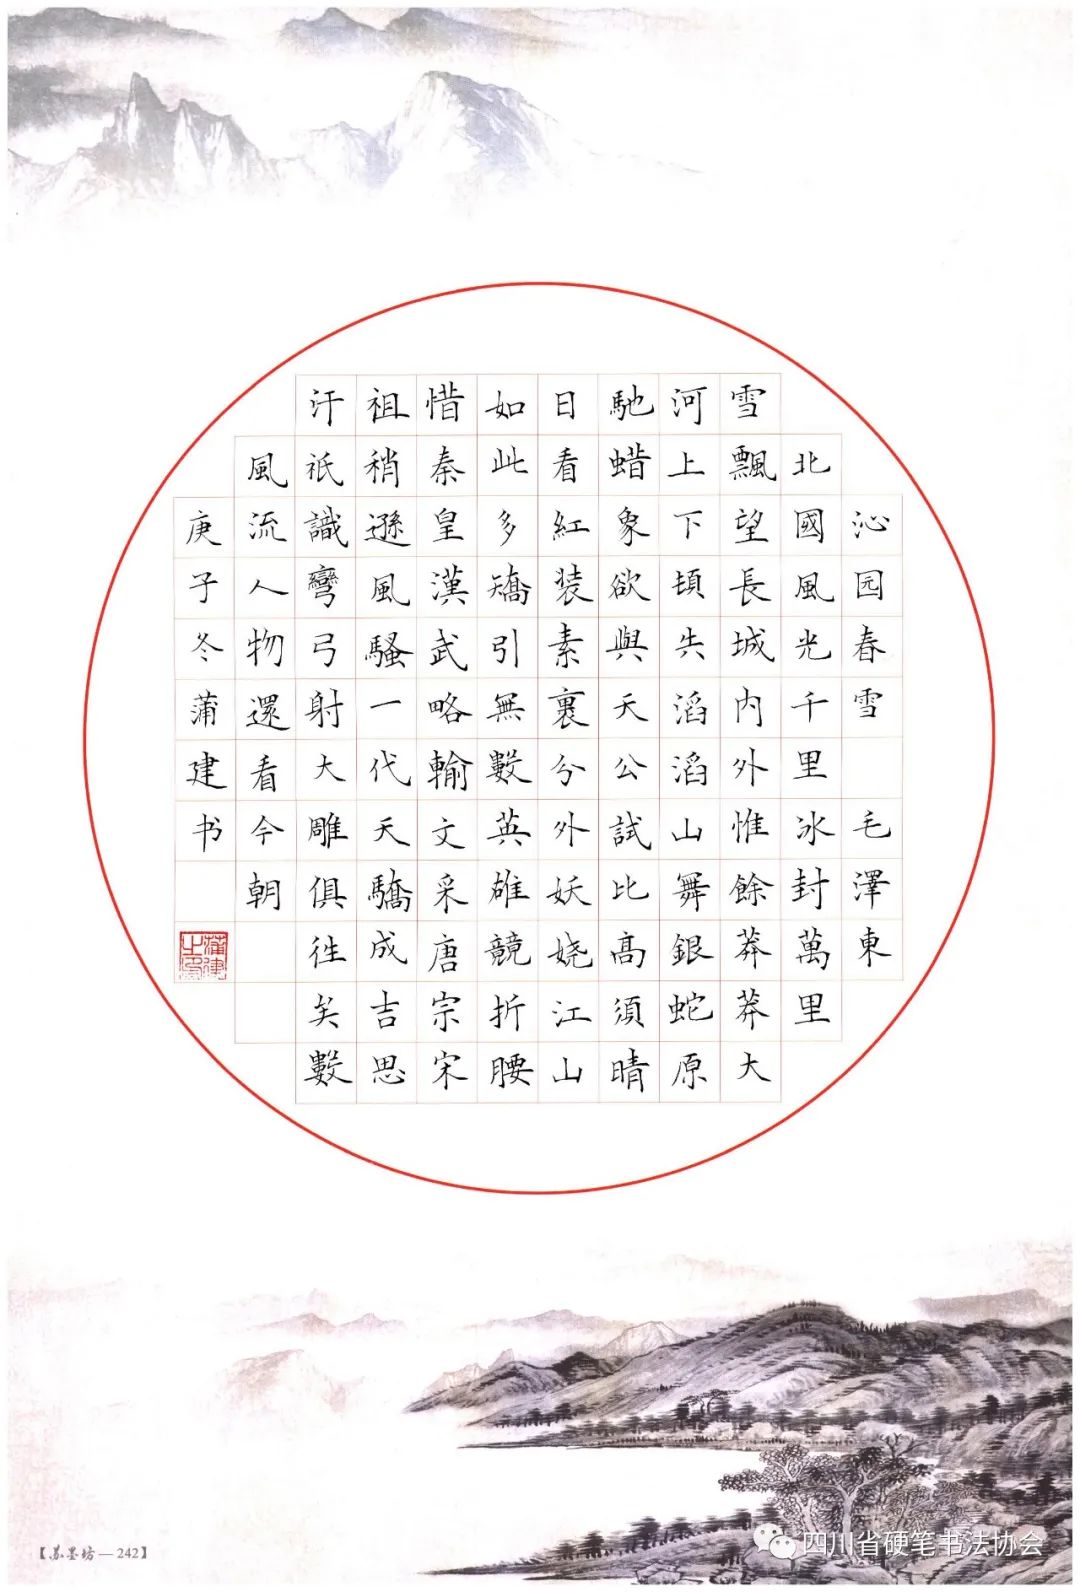 沁园春雪 毛澤東
北國風光千里冰封萬里
雪飄望長城內外惟餘莽莽大
河上下頓失滔滔山舞銀蛇原
馳蜡象欲與天公試比高須晴
日看紅装素裹分外妖娆江山
如此多矯引無數英雄競折腰
惜秦皇漢武略輸文采唐宗宋
祖稍遜風騷一代天驕成吉思
汗祇識彎弓射大雕俱往矣數
風流人物還看今朝
庚子冬蒲建书
【苏墨坊—242】
四川省硬笔书法协会